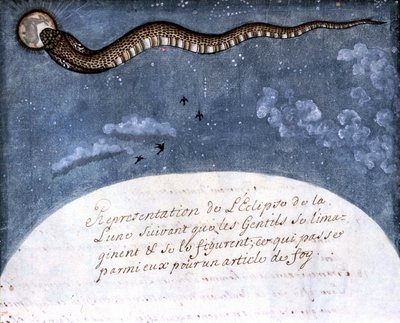 Representation de L'Eclipse de la
Lune suivant que les Gentils se lima-
ginent & se le figurent; ce qui passe
parmi eux pour un article de foy